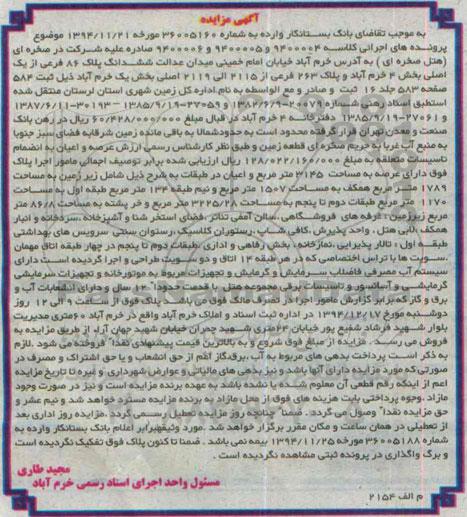 آگهی مزایده
به موجب تقاضای بانک بستانکار وارده به شماره ۳۶۰۰۵۱۶۰ مورخه ۱۳۹۴/۱۱/۲۱ موضوع
پرونده های اجرائی کلاسه ۹۴۰۰۰۰۴ و ۹۴۰۰۰۰۵ و ۹۴۰۰۰۰۶ صادره علیه شرکت در صخره ای
(هتل صخره ای ) به آدرس خرم آباد خیابان امام خمینی میدان عدالت ششدانگ پلاک ۸۶ فرعی از یک
اصلی بخش ۴ خرم آباد و پلاک ۲۶۳ فرعی از ۲۱۱۵ الی ۲۱۱۹ اصلی بخش یک خرم آباد ذیل ثبت ۵۸۴
صفحه ۵۸۳ جلد ۱۶ ثبت و صادر و مع الواسطه به نام اداره کل زمین شهری استان لرستان منتقل شده
استطبق اسناد رهنی شماره ۲۰۰۷۹-۱۳۸۲/۶/۹ و ۲۷۰۵۹-۱۳۸۵/۹/۱۹ – ۳۰۱۹۳-۱۳۸۷/۶/۱۱
و ۲۷۰۶۱-۱۳۸۵/۹/۱۹ دفترخانه ۴ خرم آباد در قبال مبلغ ۶۰/۴۲۸/۰۰۰/۰۰۰ ریال در رهن بانک
صنعت و معدن تهران قرار گرفته محدود است به حدودشمالا به باقی مانده زمین شرقابه فضای سبز جنوبا
به منبع آب غربا به حریم صخره ای قطعه زمین و طبق نظر کارشناس رسمی ارزش عرصه و اعیان به انضمام
تاسیسات متعلقه به مبلغ ۱۲۸/۰۲۲/۱۶۰/۰۰۰ ریال ارزیابی شده برابر توصیف اجمالی مامور اجرا پلاک
فوق دارای عرصه به مساحت ۳۱۴۵ متر مربع و اعیان در طبقات به شرح ذیل شامل زیر زمین به مساحت
۱۷۸۹ متر مربع همکف به مساحت ۱۵۰۷ متر مربع و نیم طبقه ۱۳۴ متر مربع طبقه اول به مساحت
۱۱۷۰ متر مربع طبقات دوم تا پنجم به مساحت ۳۲۲۵/۲۸ متر مربع و خر پشته به مساحت ۸۶/۸ متر
مربع زیرزمین : غرفه های فروشگاهی ،سالن آمفی تئاتر، فضای استخر شنا و آشپزخانه ،سردخانه و انبار
همکف :لابی هتل ، واحد پذیرش ،کافی شاپ ،رستوران کلاسیک ،رستوان سنتی سرویس های بهداشتی
طبقه اول : تالار پذیرایی ،نمازخانه، بخش رفاهی و اداری ،طبقات دوم تا پنجم در چهار طبقه اتاق مهمان
،سویت ها با تراس اختصاصی که در هر طبقه ۱۴ اتاق و دو سویت طراحی و اجرا گردیده است دارای
سیستم آب مصرفی فاضلاب سرمایش و گرمایش و تجهیزات مربوط به موتورخانه و تجهیزات سرمایشی
گرمایشی و آسانسور و تاسیسات برقی مجموعه هتل با قدمت حدودا" ۱۲ سال و دارای انشعابات آب و
برق و گاز که برابر گزارش مامور اجرا در تصرف مالک فوق می باشد پلاک فوق از ساعت ۹ الی ۱۲ روز
دوشنبه مورخ ۱۳۹۴/۱۲/۱۷ در اداره ثبت اسناد و املاک خرم آباد واقع در خرم آباد ۶۰متری مدیریت
بلوار شهید فرشاد شفیع پور خیابان ۲۴متری شهید چمران خیابان شهید جهان آراء از طریق مزایده به
فروش می رسد . مزایده از مبلغ فوق شروع و به بالاترین قیمت پیشنهادی نقدا" فروخته می شود .لازم
به ذکر است پرداخت بدهی های مربوط به آب ،برق،گاز اعم از حق انشعاب و یا حق اشتراک و مصرف در
صورتی که مورد مزایده دارای آنها باشد و نیز بدهی های مالیاتی و عوارض شهرداری و غیره تا تاریخ مزایده
اعم از اینکه رقم قطعی آن معلوم شده یا نشده باشد به عهده برنده مزایده است و نیز در صورت وجود
مازاد ،وجوه پرداختی بابت هزینه های فوق از محل مازاد به برنده مزایده مسترد خواهد شد و نیم عشر و
حق مزایده نقدا" وصول می گردد . ضمنا" چنانچه روز مزایده تعطیل رسمی گردد ،مزایده روز اداری بعد
از تعطیلی در همان ساعت و مکان مقرر برگزار خواهد شد .مورد وثیقهبرابر اعلام بانک بستانکار وارده به
شماره ۳۶۰۰۵۱۸۸ مورخه ۱۳۹۴/۱۱/۲۵ بیمه نمی باشد . ضمنا تا کنون پلاک فوق تفکیک نگردیده است
و برگ واگذاری در پرونده ثبتی مشاهده نگردیده است .
مجید طاری
مسئول واحد اجرای اسناد رسمی خرم آباد
م الف ۲۱۵۴